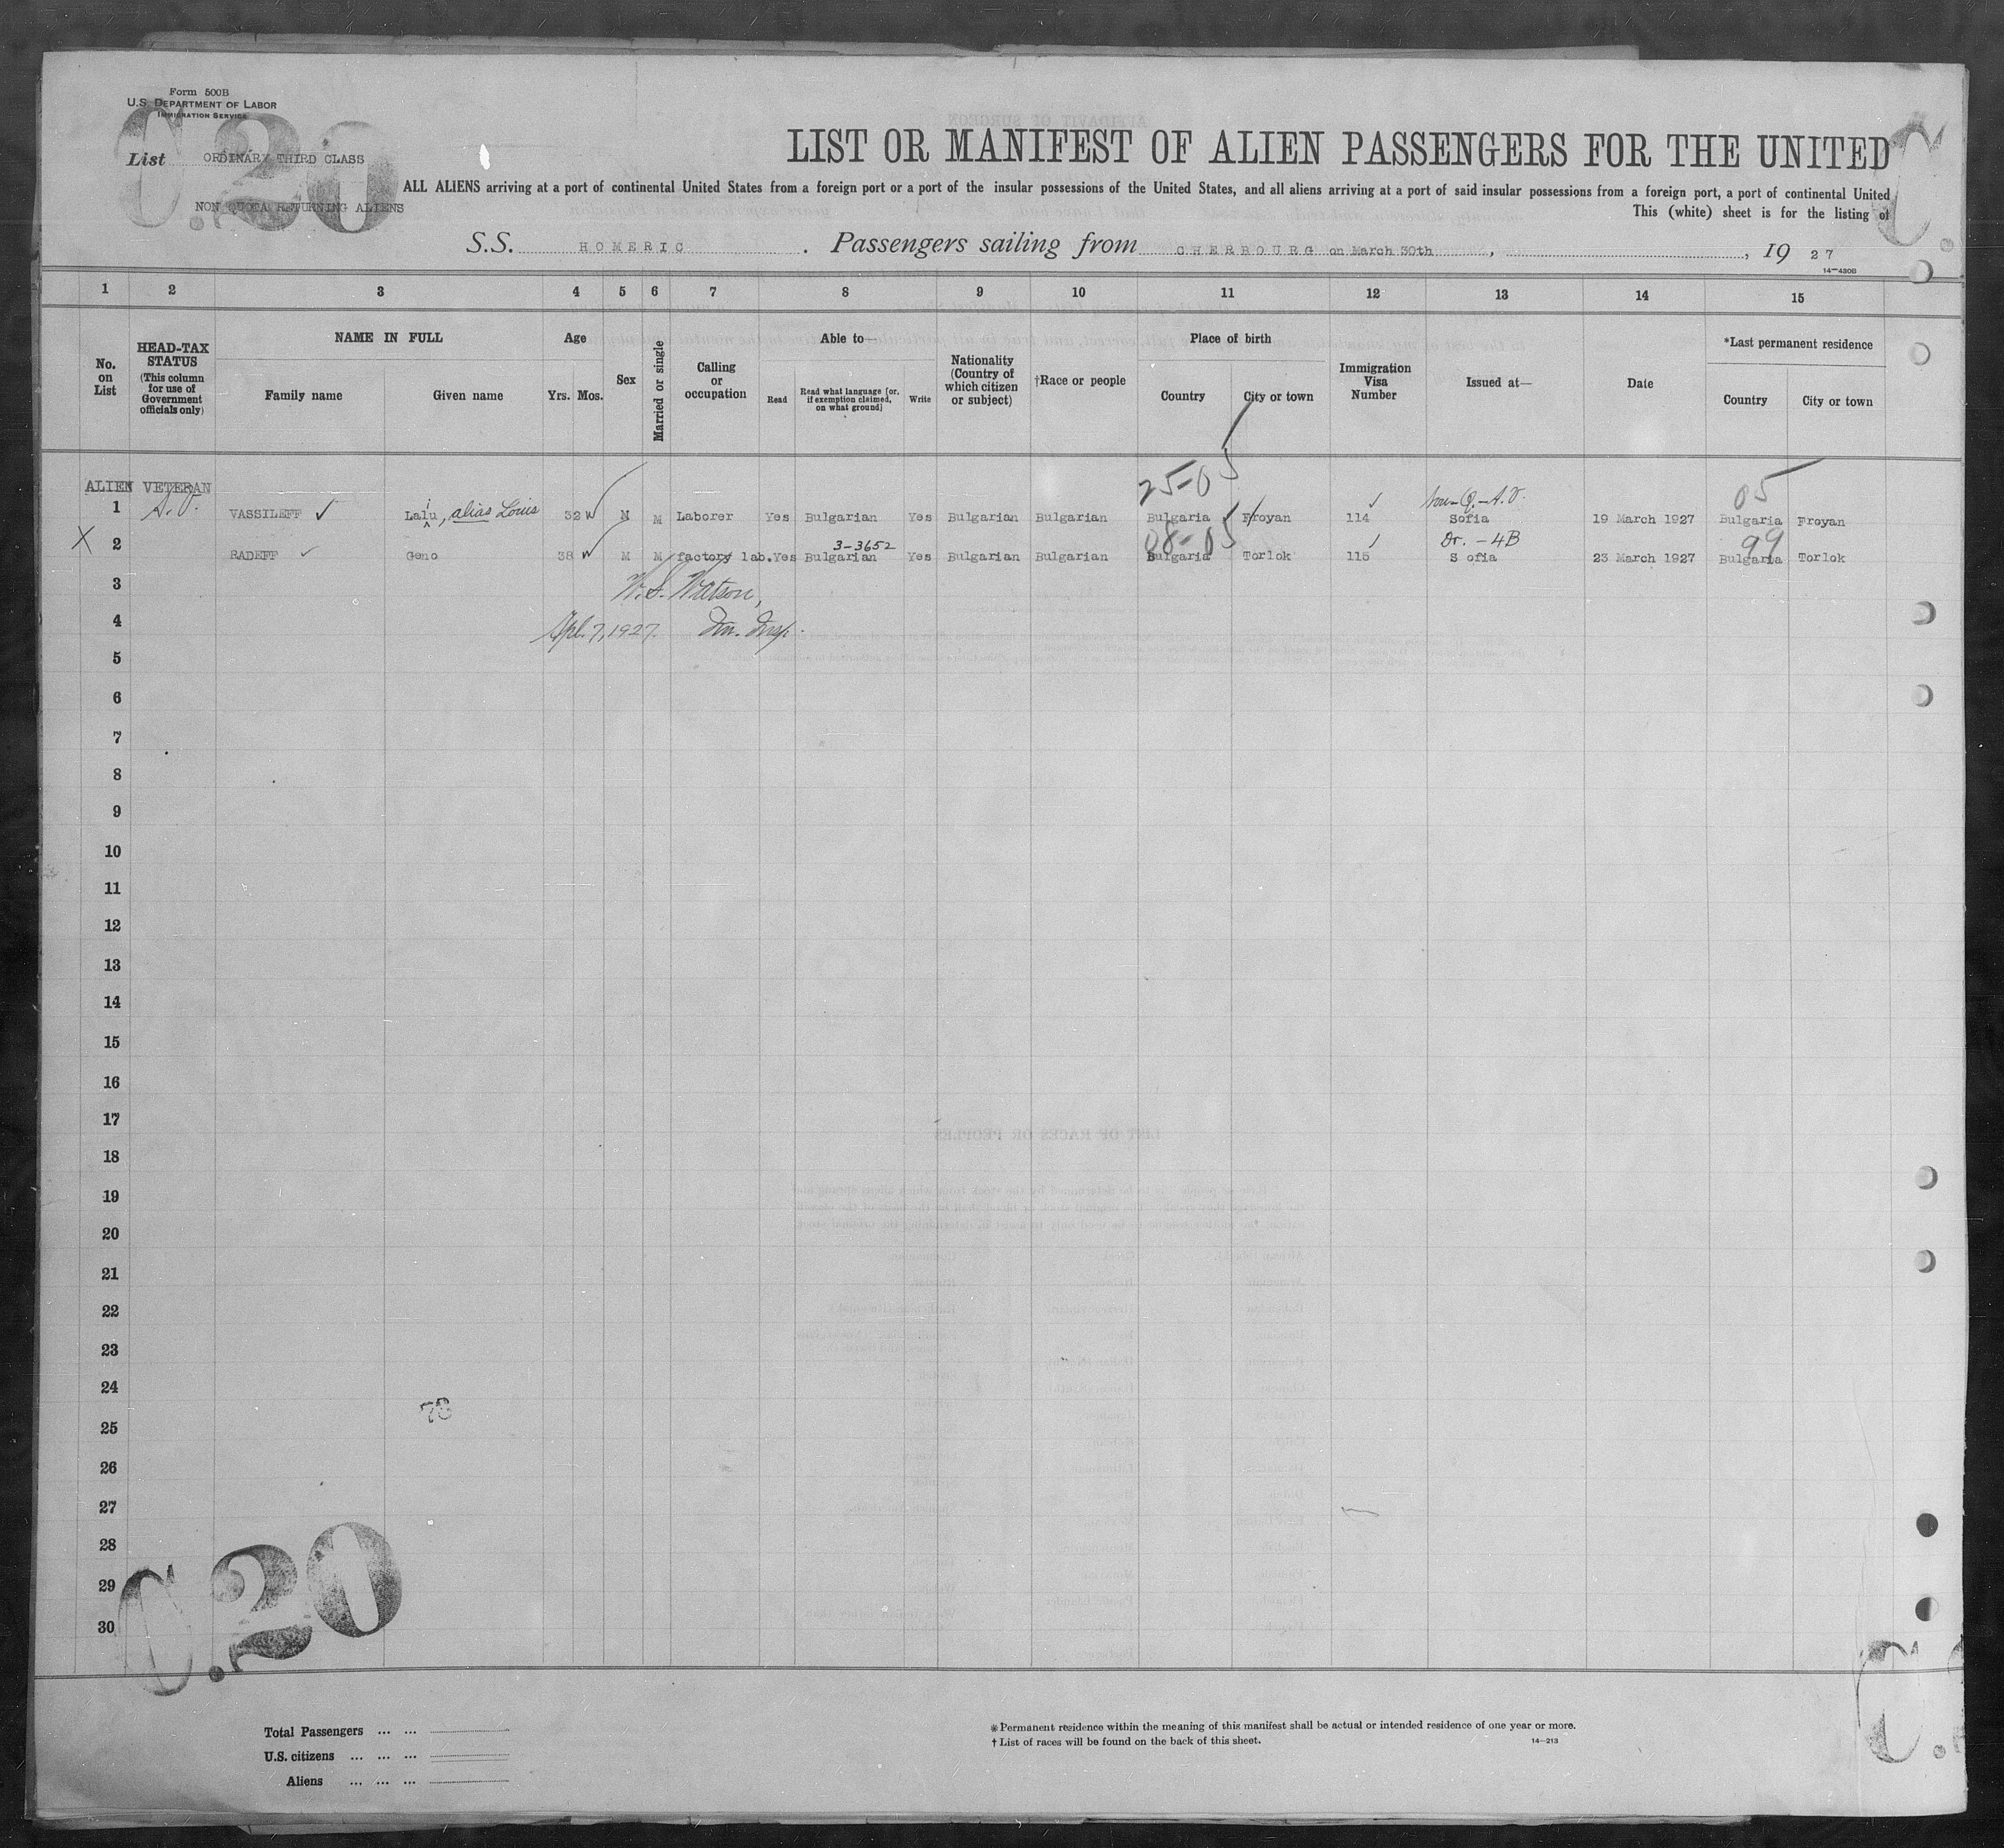 Form 500B
U.S. DEPARTMENT OF LABOR
IMMIGRATION SERVICE
C.20
List ORDINARY THIRD CLASS
NON QUOTA RETURNING ALIENS
LIST OR MANIFEST OF ALIEN PASSENGERS FOR THE UNITED
ALL ALIENS arriving at a port of continental United States from a foreign port or a port of the insular possessions of the United States, and all aliens arriving at a port of said insular possessions from a foreign port, a port of continental United
This (white) sheet is for the listing of
S.S. HOMERIC . Passengers sailing from CHERBOURG on March 30th , , 19 27
14—430B
1 2 3 4 5 6 7 8 9 10 11 12 13 14 15
No. on List
HEAD-TAX STATUS (This column for use of Government officials only)
NAME IN FULL
Family name Given name
Age
Yrs. Mos.
Sex
Married or single
Calling or occupation
Able to—
Read
Read what language [or, if exemption claimed, on what ground]
Write
Nationality (Country of which citizen or subject)
†Race or people
Place of birth
Country City or town
Immigration Visa Number
Issued at—
Date
*Last permanent residence
Country City or town
25-05
ALIEN VETERAN
1 A.V. VASSILEFF ✓ Lalu, i alias Louis 32 W M M Laborer Yes Bulgarian Yes Bulgarian Bulgarian Bulgaria Froyan 114 Non-Q.-A.V. Sofia 19 March 1927 05 Bulgaria Froyan
X 2 RADEFF ✓ Geno 38 W M M factory lab. Yes 3-3652 Bulgarian Yes Bulgarian Bulgarian 08-05 Bulgaria Torlok 115 Or. -4B S ofia 23 March 1927 99 Bulgaria Torlok
3 W.S. Watson,
4 Apl. 7, 1927. Im. Insp.
5
6
7
8
9
10
11
12
13
14
15
16
17
18
19
20
21
22
23
24
78
25
26
27
28
29
30
C.20
Total Passengers ... ...
U.S. citizens ... ... ...
Aliens ... ... ...
*Permanent residence within the meaning of this manifest shall be actual or intended residence of one year or more.
†List of races will be found on the back of this sheet.
14—213